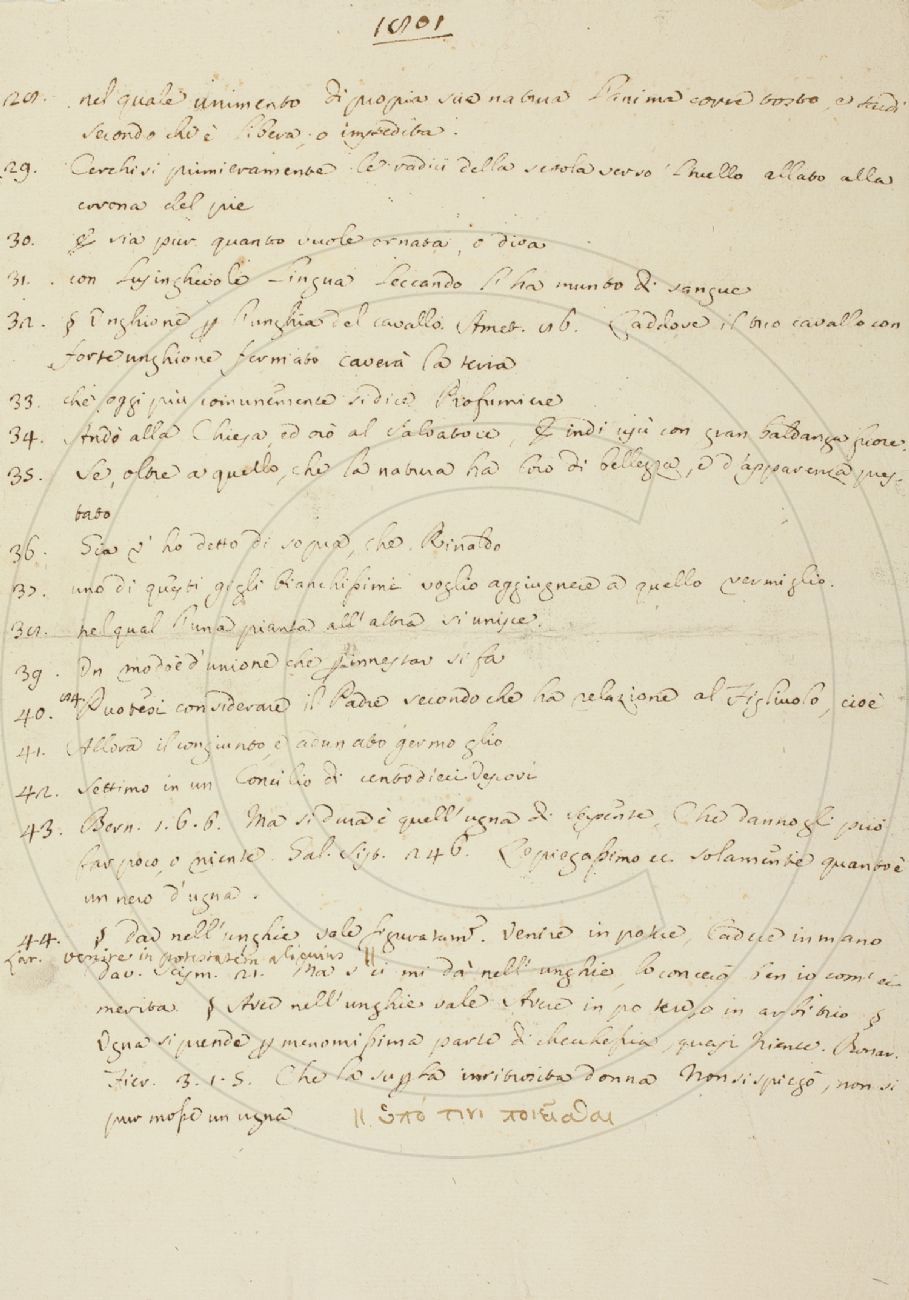 1801
28. nel quale unimento di propia sua natura l'anima corre tosto, e tardi
secondo che è libera, o impedita.
29. Cerchisi primieramente le radici della setola verso 'l tuello allato alla
corona del pie
30. E sia pur quanto vuole ornata, o diva
31. con lusinghevole lingua leccando l'ha munto di sangue
32. § Unghione p l'unghia del cavallo. Amet. 16. Laddove il tuo cavallo con
forte unghione fermato caverà la terra
33. che oggi più comunemente si dice Profumiere
34. Andò alla Chiesa, ed orò al Salvatore, E indi uscì con gran baldanza fuore.
35. Se, oltre a quello, che la natura ha loro di bellezza, e d'apparenza pres-
tato
36. Gia v' ho detto di sopra, che Rinaldo
37. uno di questi gigli bianchissimi voglio aggiugnere a quello vermiglio.
38. nel qual l'una pianta all'altra si unisce.
39. Un modo è d'unione che p innestar si fa
40. Puotesi considerare il Padre secondo che ha relazione al Figliuolo, cioè
41. Allora il congiunto, e adunato germoglio
42. Settimo in un Concilio di centodieci Vescovi
43. Bern. 1. 6. 6. Ma si dura è quell'ugna di serpente, Che dannogli può
far poco, o niente. Gal. Sist. 246. Lo piegassimo ec. solamente quanto è
un nero d'ugna.
44. § Dar nell'unghie vale figuratamt. Venire in potere, Cadere in mano
Lat. venire in potestatem alicuius ||
Dav. Scism. 21. Ma s' ei mi dà nell'unghie, lo concerò ben io com' ei
merita § Aver nell'unghie vale Avere in potere, o in arbitrio §
Ugna si prende p menomissima parte di checchessia, quasi Niente. Buonar.
Fier. 3. 1. 5. Che la suppa intirizzita donna Non si spiegò, non si
pur mosse un ugna || ὑπό τινι ποιεῖσθαι